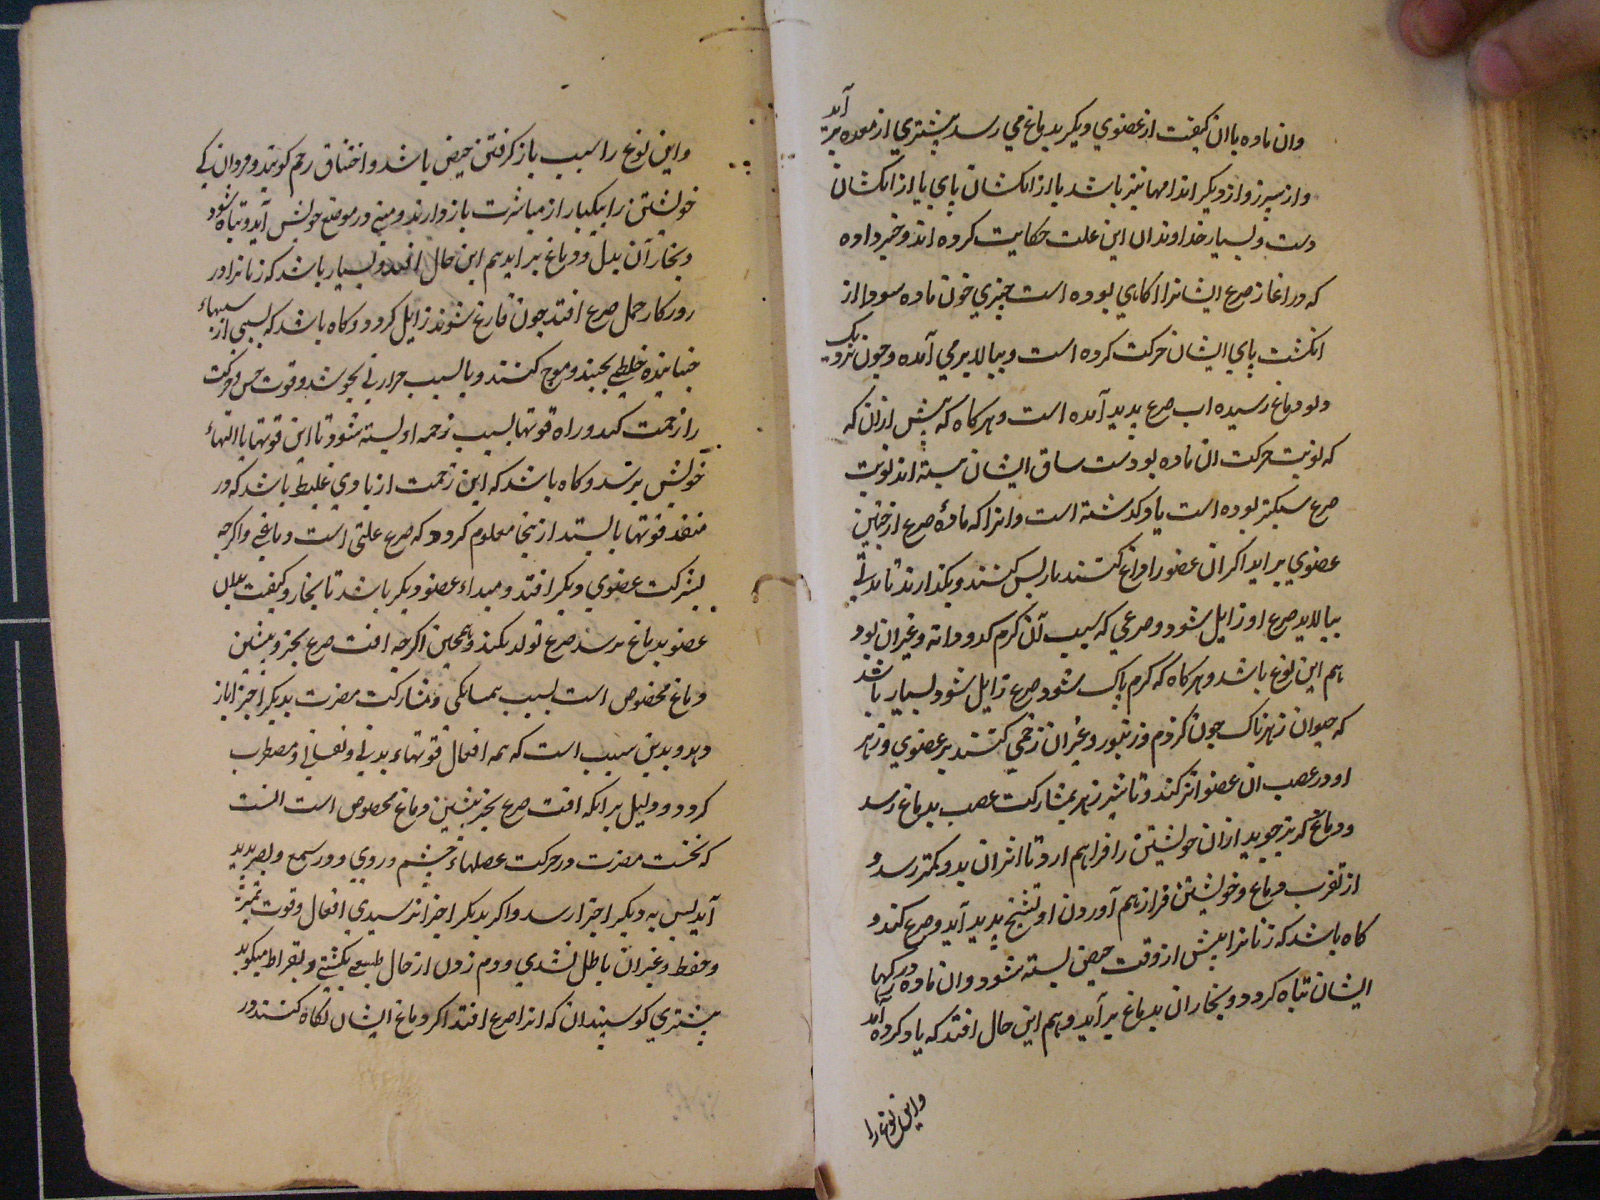 وان ماده یا ان کیفیت از عضوي دیکر بدماغ مي رسد بیشتري از معده بر آید
واز سپرز واز دیکر اندامها نیز باشد یا از انکشتان پاي یا از انکشتان
دست و بسیار خداوندان این علت حکایت کرده اند و خبر داده
که در اغاز صرع ایشانرا اکاهي بوده است چیزي خون ماده سودا از
انکشت پاي ایشان حرکت کرده است و ببالا بر مي آمده و چون نزدیک
دل و دماغ رسیده است صرع پدید آمده است و هرکاه که پیش ازان که
که نوبت حرکت ان ماده بودست ساق ایشان بسته اند نوبت
صرع سبکتر بوده است یا در کذشته است و انرا که مادهٔ صرع از چنین
عضوي بر اید اکر ان عضو را داغ کنند یا ریس کنند و بکذارند تا مدتي
ببالاید صرع او زایل شود و صرعي که بسبب آن کرم کدو دانه و غیر ان بود
هم این نوع باشد و هرکاه که کرم پاک شود صرع زایل شود و بسیار باشد
که حیوان زهرناک چون کژدم و زنبور و غیر ان زخمي کنند بر عضوي و زهر
او در عصب ان عضو اثر کند و تاثیر زهر بمشارکت عصب بدماغ رسد
و دماغ کریز جوید ازان خویشتن را فراهم ارد تا اثر ان بدو کمتر رسد و
از تقرب دماغ و خویشتن فراز هم آوردن او تشنج پدید آید و صرع کند و
کاه باشد که زنانرا پیش از وقت حیض بسته شود و ان ماده در رکها
ایشان تباه کردد و بخار ان بدماغ بر آید و هم این حال افتد که یاد کرده آمد
و این نوع را
و این نوع را سبب باز کرفتن حیض باشد و اختناق رحم کویند و مردان که
خویشتن را بیکبار از مباشرت باز دارند و مني در موضع خویش آید و تباه شود
و بخار آن بدل و دماغ بر اید هم این حال افتد و بسیار باشد که زنانرا در
روزکار حمل صرع افتد چون فارغ شوند زایل کردد و کاه باشد که بسببي از سببهاء
جنباننده خلطي بجنبد و موج کنند و یا بسبب حرارتي بجوشد و قوت حس و حرکت
را زحمت کند و راه قوتها بسبب زحمه او بسته شود تا این قوتها بالتهاء
خویش نرسد و کاه باشد که این زحمت از بادي غلیظ باشد که در
منفذ قوتها بایستد از ینجا معلوم کردد که صرع علتي است دماغي و اکرچه
بشرکت عضوي دیکر افتد و مبداء عضو دیکر باشد تا بخار و کیفیت بدان
عضو بدماغ نرسد صرع تولد نکند و همچنین اکرچه افت صرع بجزو پیشین
دماغ مخصوص است بسبب همسایکي و مشارکت مضرت بدیکر اجزا باز
دهد و بدین سبب است که همه افعال قوتهاء بدني و نفساني و مضطرب
کردد و دلیل بر انکه افت صرع بجزء پیشین دماغ مخصوص است انست
که نخست مضرت در حرکت عضلهاء چشم و روي و در سمع و بصر پدید
آید پس به دیکر اجزا رسد و اکر بدیکر اجزا نرسیدي افعال و قوت تمیز
و حفظ و غیر ان باطل نشدي و دم زدن از حال طبیعي نکشتي و بقراط میکوید
بیشتري کوسپندان که انرا صرع افتد اکر دماغ ایشان نکاه کنند در